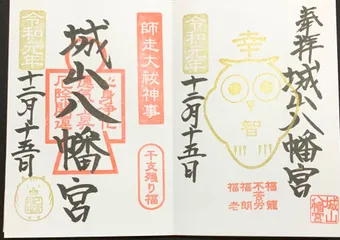 奉拝
城山八幡宮
令和元年
十二月十五日
幸
智
福龍
不苦労
福朗
福老
城山
八幡宮
師走大祓神事
干支残り福
城山八幡宮
令和元年
十二月十五日